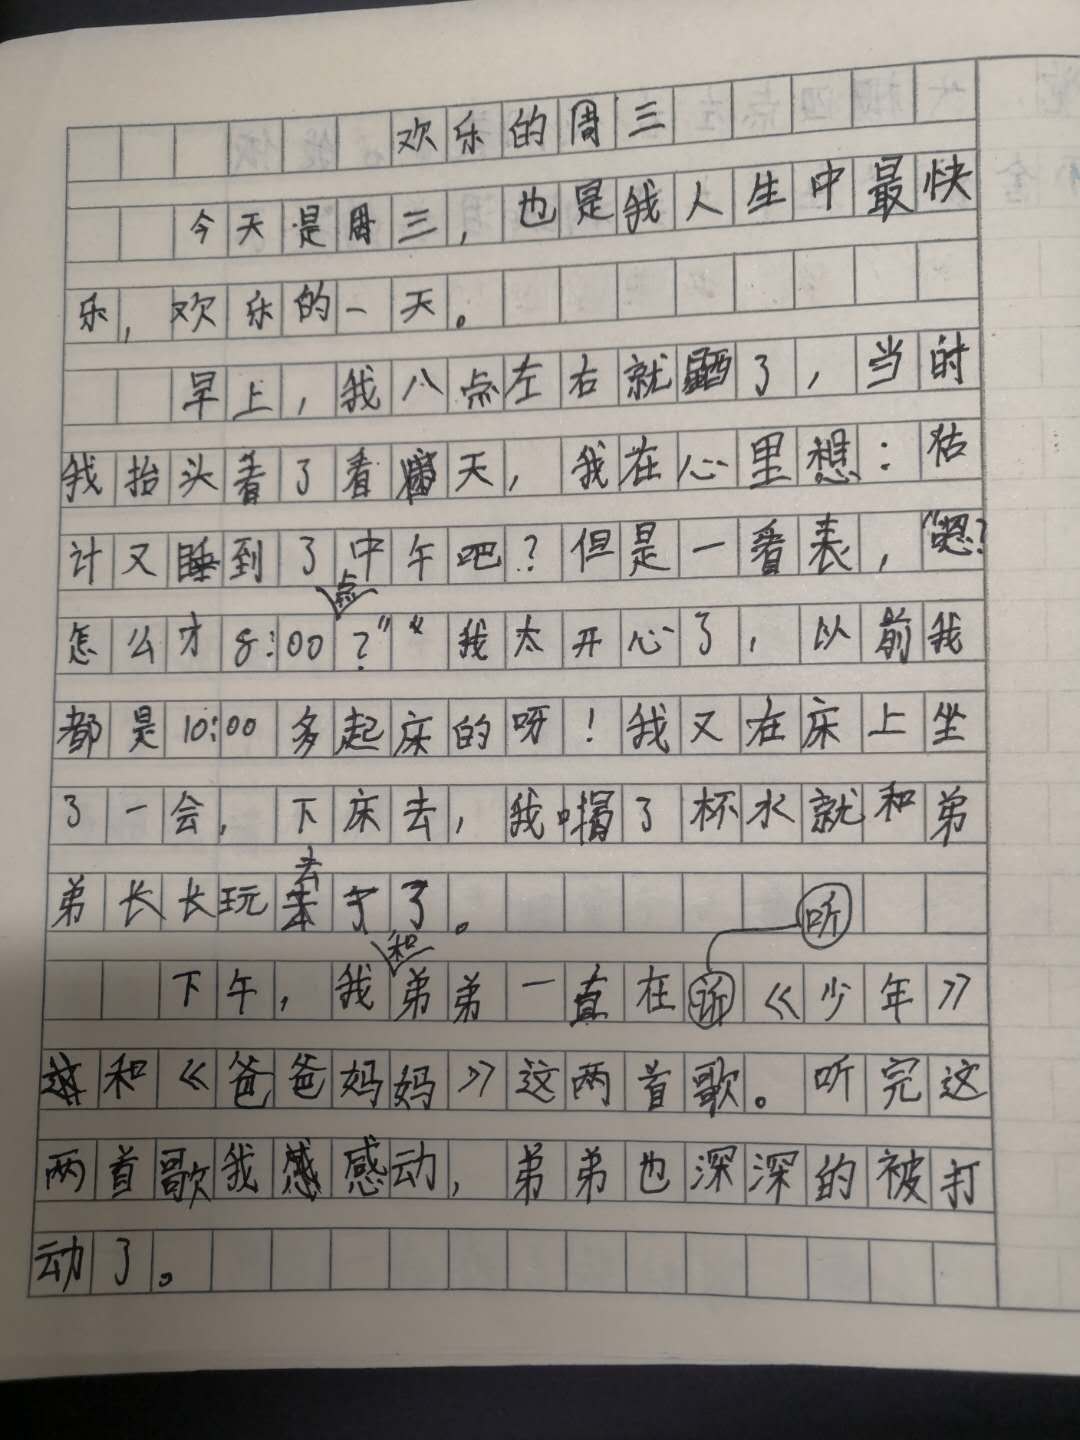 欢乐的周三
今天是周三，也是我人生中最快
乐，欢乐的一天。
早上，我八点左右就醒了，当时
我抬头看了看天，我在心里想：估
计又睡到了中午吧？但是一看表，“嗯？
怎么才8:00点？”“我太开心了，以前我
都是10:00多起床的呀！我又在床上坐
了一会，下床去，我喝了杯水就和弟
弟长长玩去了。
听
下午，我和弟弟一直在诉《少年》
和《爸爸妈妈》这两首歌。听完这
两首歌我感动，弟弟也深深的被打
动了。